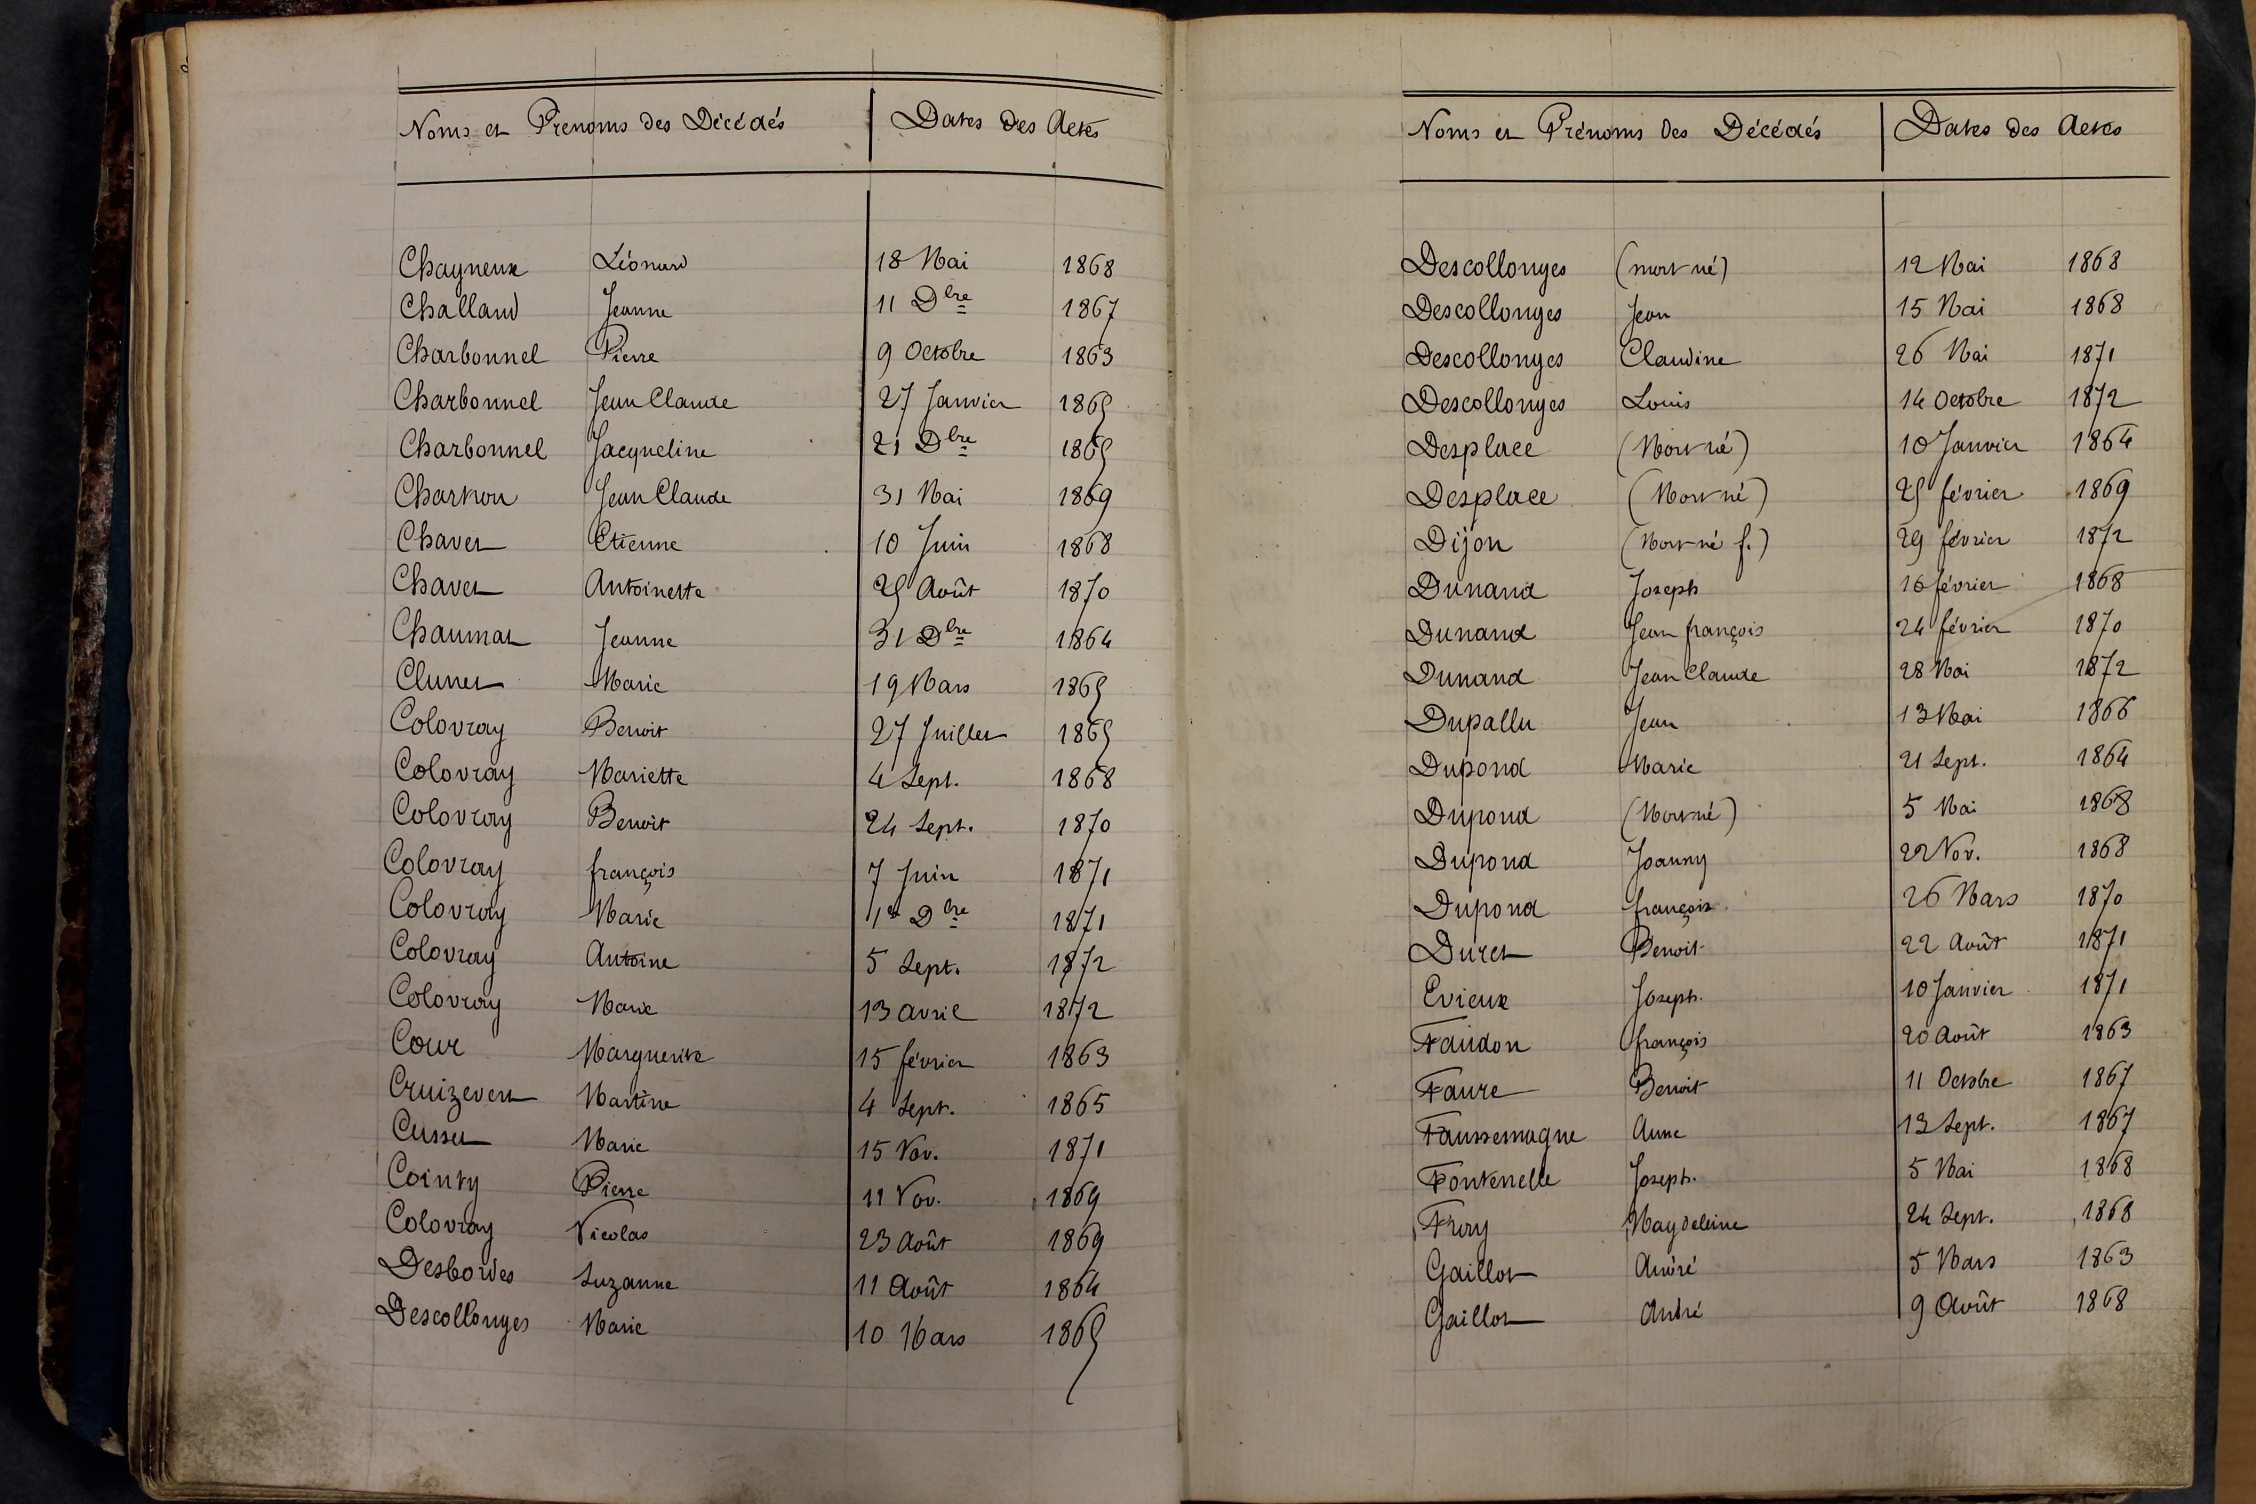 Noms et Prenoms des Décédés Dates des Actes
Chagneux Léonard 18 Mai 1868
Challand Jeanne 11 Dbre 1867
Charbonnel Pierre 9 Octobre 1863
Charbonnel Jean Claude 27 Janvier 1865
Charbonnel Jacqueline 21 Dbre 1865
Chartron Jean Claude 31 Mai 1869
Chavet Etienne 10 Juin 1868
Chavet Antoinette 25 Août 1870
Chaumat Jeanne 31 Dbre 1864
Clunet Marie 19 Mars 1865
Colovray Benoit 27 Juillet 1865
Colovray Mariette 4 Sept. 1868
Colovray Benoit 24 Sept. 1870
Colovray françois 7 Juin 1871
Colovray Marie 1er Dbre 1871
Colovray Antoine 5 Sept. 1872
Colovray Marie 13 avril 1872
Cour Marguerite 15 février 1863
Cruizevert Martine 4 Sept. 1865
Cusset Marie 15 Nov. 1871
Cointy Pierre 11 Nov. 1869
Colovray Nicolas 23 Août 1869
Desbordes Suzanne 11 Août 1864
Descollonges Marie 10 Mars 1865
Noms et Prénoms des Décédés Dates des Actes
Descollonges (mort né) 12 Mai 1868
Descollonges Jean 15 Mai 1868
Descollonges Claudine 26 Mai 1871
Descollonges Louis 14 Octobre 1872
Desplace (Mort né) 10 Janvier 1864
Desplace (Mort né) 25 février 1869
Dijon (Mort-né f.) 29 février 1872
Dunand Joseph 16 février 1868
Dunand Jean françois 24 février 1870
Dunand Jean Claude 28 Mai 1872
Dupallu Jean 13 Mai 1866
Dupond Marie 21 Sept. 1864
Dupond (Mort né) 5 Mai 1868
Dupond Joanny 22 Nov. 1868
Dupond françois 26 Mars 1870
Duret Benoit 22 Août 1871
Evieux Joseph. 10 Janvier 1871
Faudon françois 20 Août 1863
Faure Benoit 11 Octobre 1867
Faussemagne Anne 13 Sept. 1867
Fontenelle Joseph. 5 Mai 1868
Frory Magdeleine 24 Sept. 1868
Gaillot André 5 Mars 1863
Gaillot André 9 Août 1868